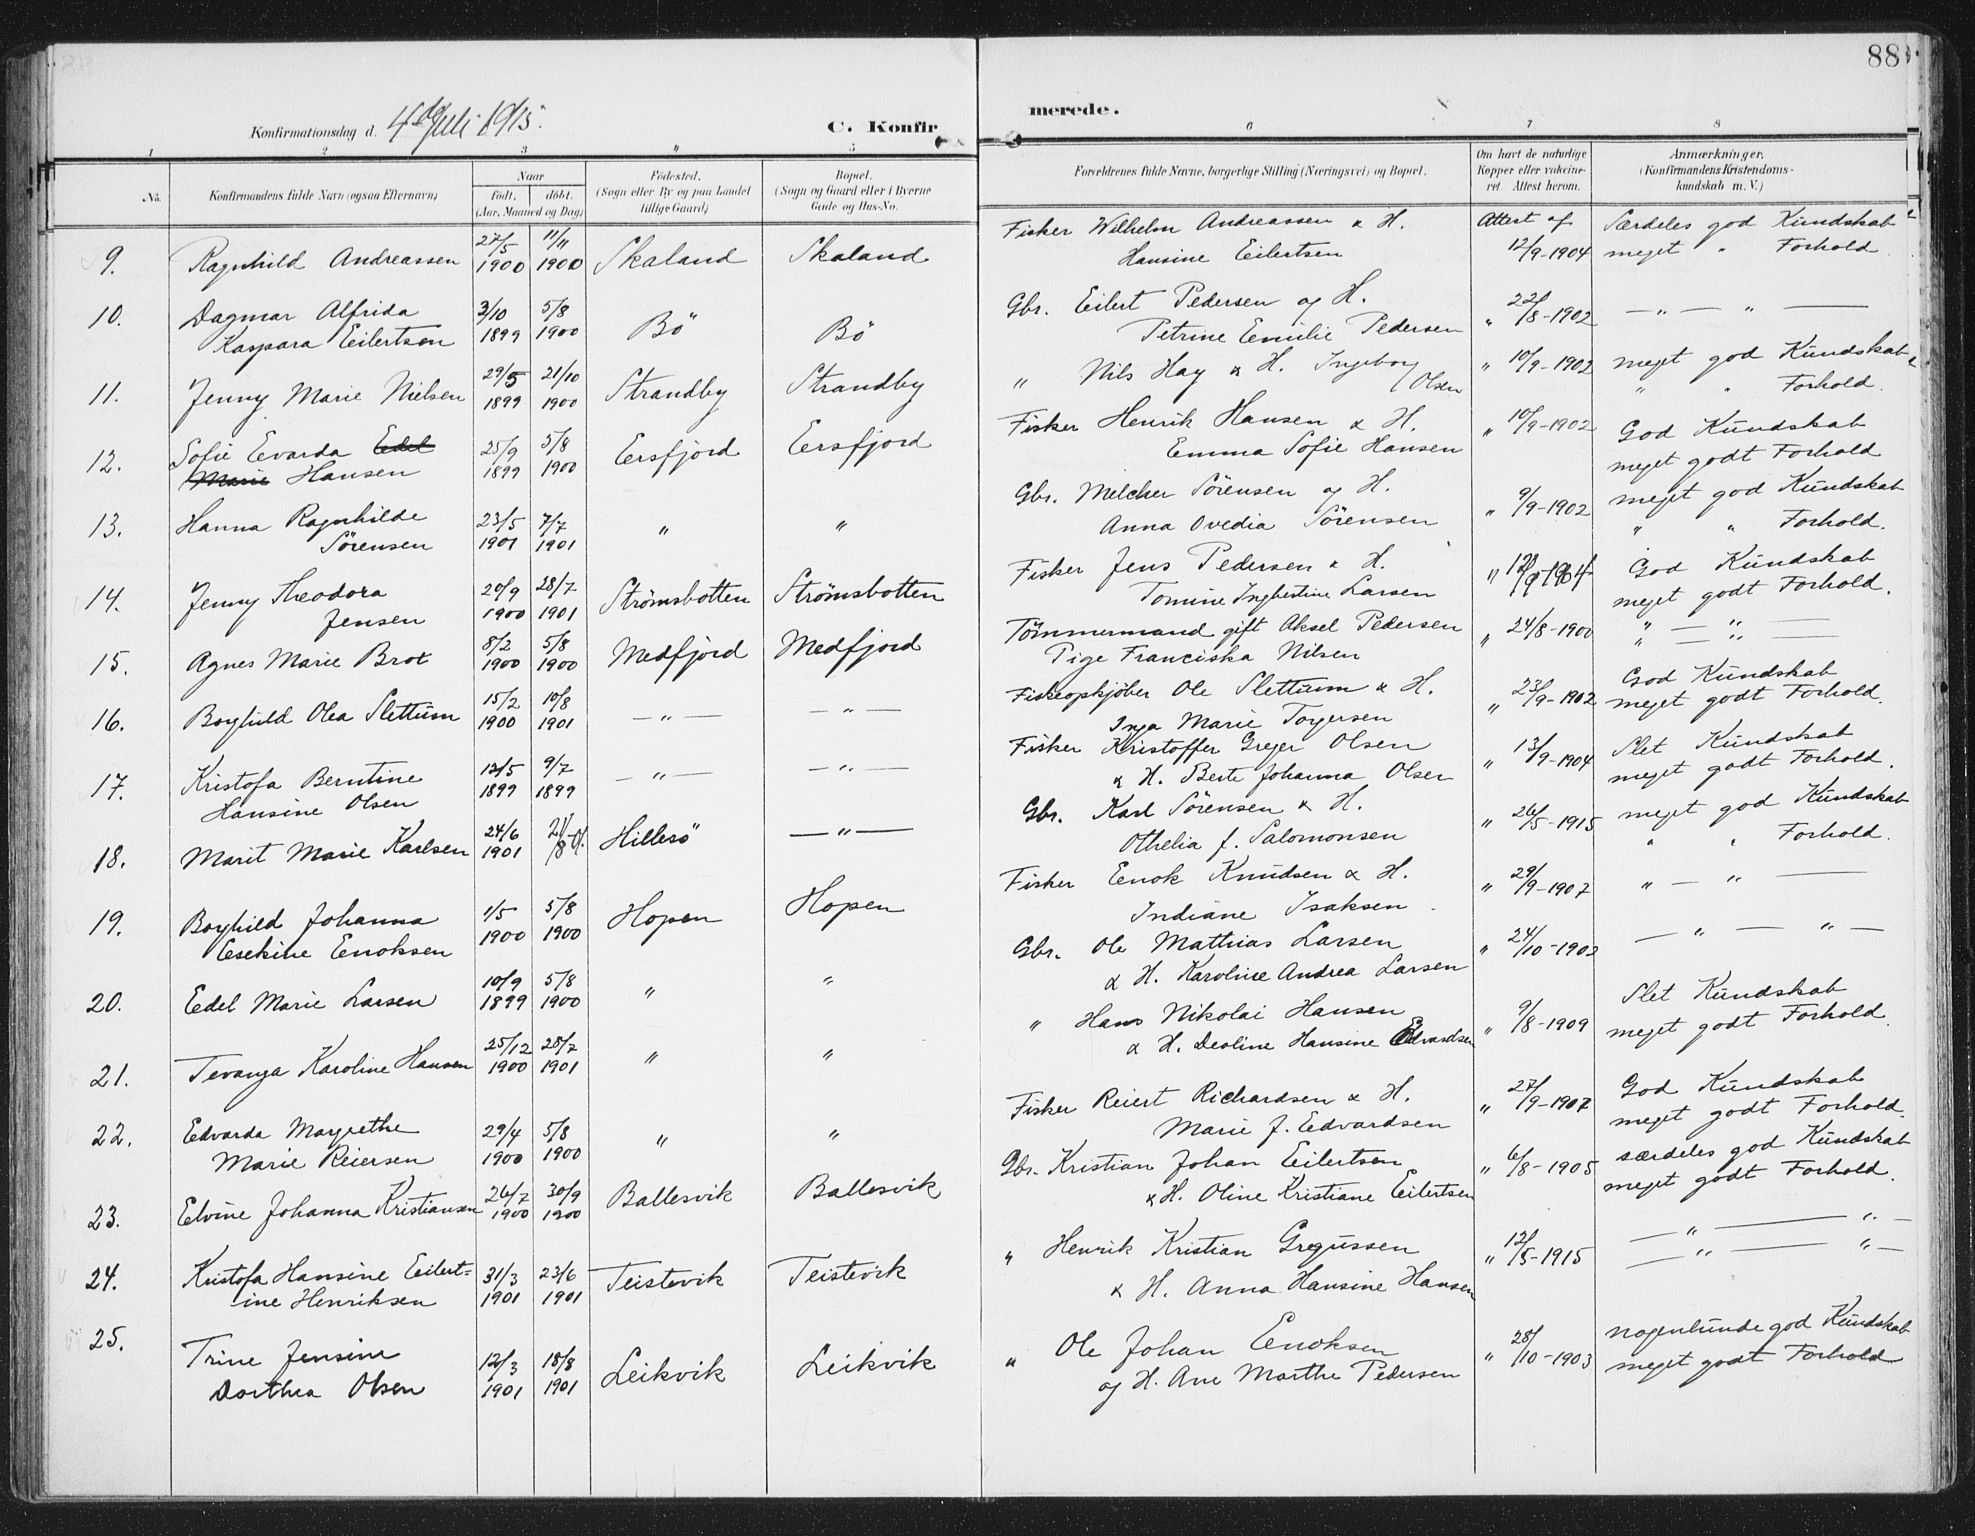 88
Konfirmationsdag d. 4de Juli 1915.
C. Konfir
merede.
1 2 3 4 5 6 7 8
No.
Konfirmandens fulde Navn (ogsaa Efternavn)
Naar
födt. döbt.
(Aar, Maaned og Dag)
Födested.
(Sogn eller By og paa Landet
tillige Gaard)
Bopæl.
(Sogn og Gaard eller i Byerne
Gade og Hus-No.
Forældrenes fulde Navne, borgerlige Stilling (Næringsvei) og Bopæl.
Om havt de naturlige
Kopper eller vakcine-
ret Attest herom.
Anmærkninger,
(Konfirmandens Kristendoms-
kundskab m. V.)
9. Ragnhild Andreassen 27/5 1900 11/11 1900 Skaland Skaland Fisker Wilhelm Andreassen & H. Attest af Særdeles god Kundskab
Hansine Eilertsen 12/9-1904 meget " Forhold
10. Dagmar Alfrida 3/10 5/8 Bö Bö Gbr. Eilert Pedersen og H. 22/8-1902 — " — " —
Kaspara Eilertsen 1899 1900 Petrine Emilie Pedersen
11. Jenny Marie Nielsen 29/5 1899 21/10 1900 Strandby Strandby " Nils Hay & H. Ingeborg " 10/9-1902 meget god Kundskab
Olsen " " Forhold.
12. Sofie Evarda Edel 25/9 5/8 Eersfjord Eersfjord Fisker Henrik Hansen & H. " 10/9-1902 God Kundskab
Marie Hansen 1899 1900 Emma Sofie Hansen meget godt Forhold
13. Hanna Ragnhilde 23/5 7/7 " " Gbr. Melcher Sörensen og H. " 9/9-1902 meget god Kundskab
Sörensen 1901 1901 Anna Ovedia Sörensen " " Forhold.
14. Jenny Theodora 20/9 28/7 Strömsbotten Strömsbotten Fisker Jens Pedersen & H. " 12/9-1904 God Kundskab
Jensen 1900 1901 Tomine Ingbertine Larsen meget godt Forhold.
15. Agnes Marie Brox 8/2 1900 5/8 1900 Medfjord Medfjord Tömmermand gift Aksel Pedersen " 24/8-1900 " — "
Pige Franciska Nilsen " — " —
16. Borghild Olea Slettum 15/2 1900 10/8 1901 — " — — " — Fiskeopkjöber Ole Slettum & H. " 23/9-1902 God Kundskab
Inga Marie Torgersen meget godt Forhold.
17. Kristofa Berntine 12/5 9/7 — " — — " — Fisker Kristoffer Greger Olsen " 13/9-1904 Slet Kundskab
Hansine Olsen 1899 1899 & H. Berte Johanna Olsen meget godt Forhold.
18. Marit Marie Karlsen 24/6 1901 21/8-01. Hillesö — " — Gbr. Karl Sörensen & H. " 26/5-1915 meget god Kundskab
Othelia f. Salomonsen " " Forhold.
19. Borghild Johanna 1/5 5/8 Hopen Hopen Fisker Eenok Knudsen & H. " 29/9-1907 " — " —
Esekine Enoksen 1900 1900 Indiane Isaksen
20. Edel Marie Larsen 10/9 1899 5/8 1900 " " Gbr. Ole Mathias Larsen " 24/10-1902 — " — " —
& H. Karoline Andrea Larsen
21. Tevanga Karoline Hansen 25/12 1900 28/7 1901 " " " Hans Nikolai Hansen " 9/8-1909 Slet Kundskab
& H. Deoline Hansine Edvardsen meget godt Forhold.
22. Edvarda Margrethe 29/4 5/8 " " Fisker Reiert Richardsen & H. " 27/9-1907 God Kundskab
Marie Reiersen 1900 1900 Marie f. Edvardsen meget godt Forhold.
23. Elvine Johanna Kristiansen 26/7 1900 30/9 1900 Ballesvik Ballesvik Gbr. Kristian Johan Eilertsen " 6/8-1905 særdeles god Kundskab
& H. Oline Kristiane Eilertsen meget godt Forhold.
24. Kristofa Hansine Eilert= 31/3 23/6 Teistevik Teistevik " Henrik Kristian Gregussen " 12/5-1915 — " — " —
ine Henriksen 1901 1901 & H. Anna Hansine Hansen — " — " —
25. Trine Jensine 12/3 18/8 Leikvik Leikvik " Ole Johan Enoksen " 28/10-1903 nogenlunde god Kundskab
Dorthea Olsen 1901 1901 og H. Ane Marthe Pedersen meget godt Forhold